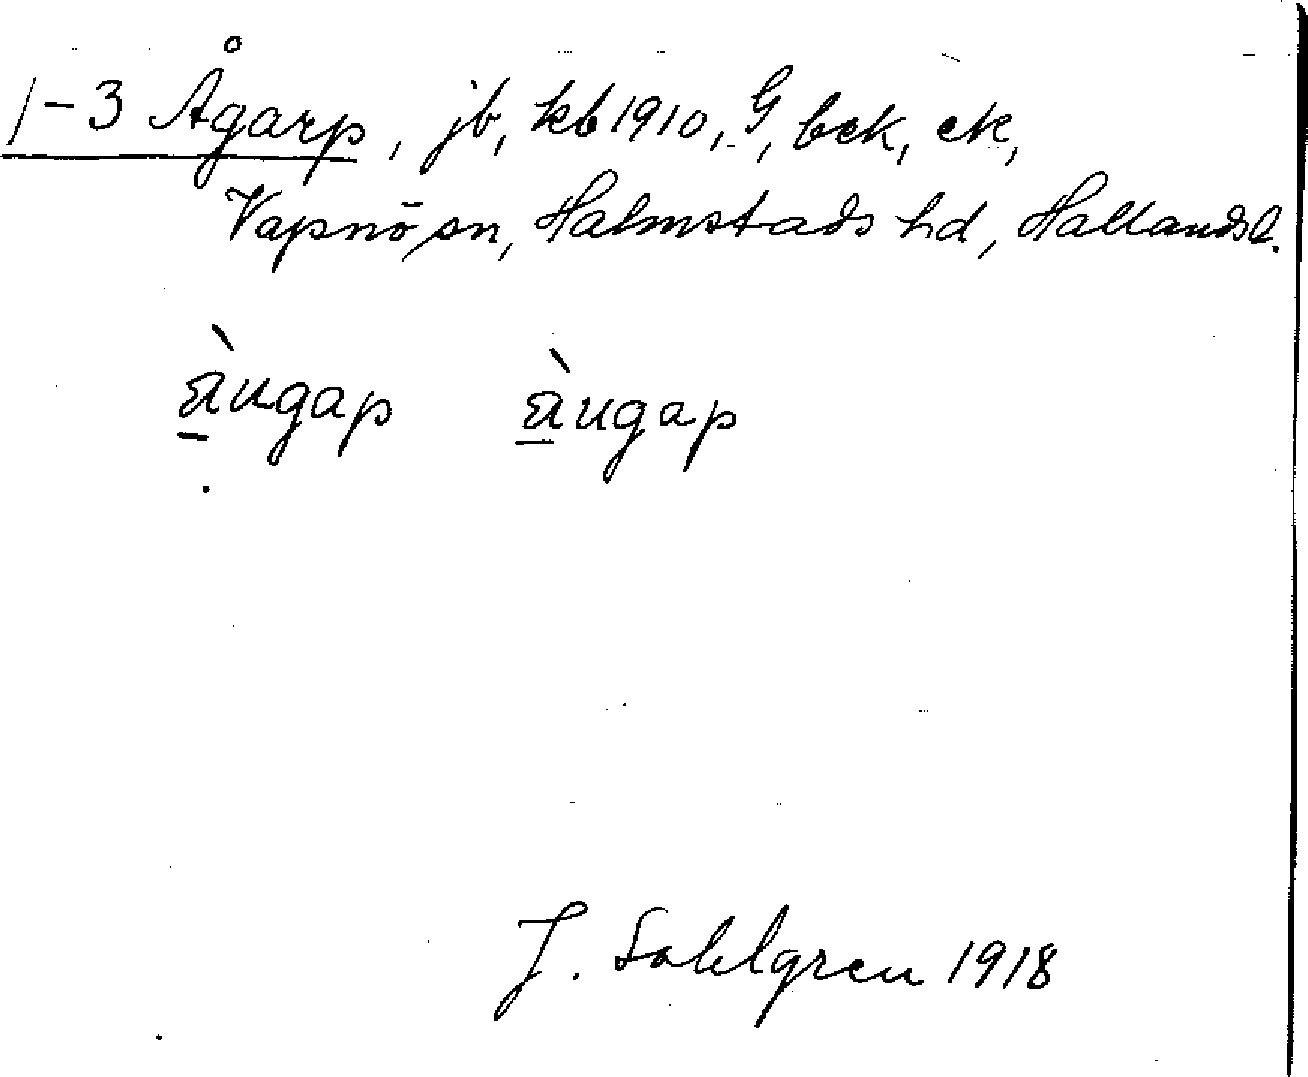 1-3 Ågarp, jb, kb 1910, G, bek, ek,
Vapnö sn, Halmstads hd, Hallands l.
àugap àugap
J. Sahlgren 1918